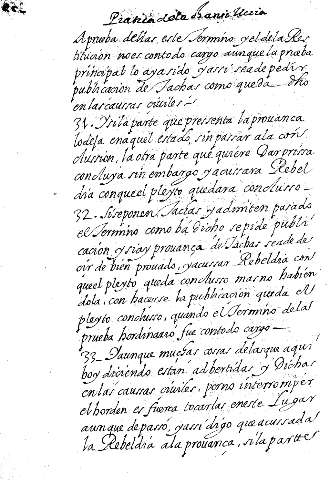 Pratica de la Chanzilleria
Aprueba dellas este Termino yel dela Res
titucion no es con todo cargo aunque la prueba
principal lo aya sido, y assi se a de pedir
publicacion de Tachas como queda dho
en las caussas ciuiles –
31. Y si la parte que pressenta la prouança
lo dexa en aquel estado, sin passar ala con
clussion, la otra parte que quiere Dar prissa
concluya sin embargo y acusara Rebel
dia con que el pleyto quedara conclusso –
32. Si se ponen Tachas y admiten passado
el Termino como ba dicho se pide publi
cacion, y si ay prouança de Tachas se a de
oir de bien prouado, y acussar Rebeldia con
que el pleyto queda conclusso mas no habien
dola, con hacerse la publicacion queda el
pleyto conclusso, quando el Termino de la
prueba hordinario fue con todo cargo –
33 – Y aunque muchas cosas de las que aqui
boy diciendo estan aduertidas y Dichas
en las caussas ciuiles, por no interromper
el horden es fuerza tocarlas en este Lugar
aunque de passo, y assi digo que acussada
la Rebeldia a la prouança, si la partes